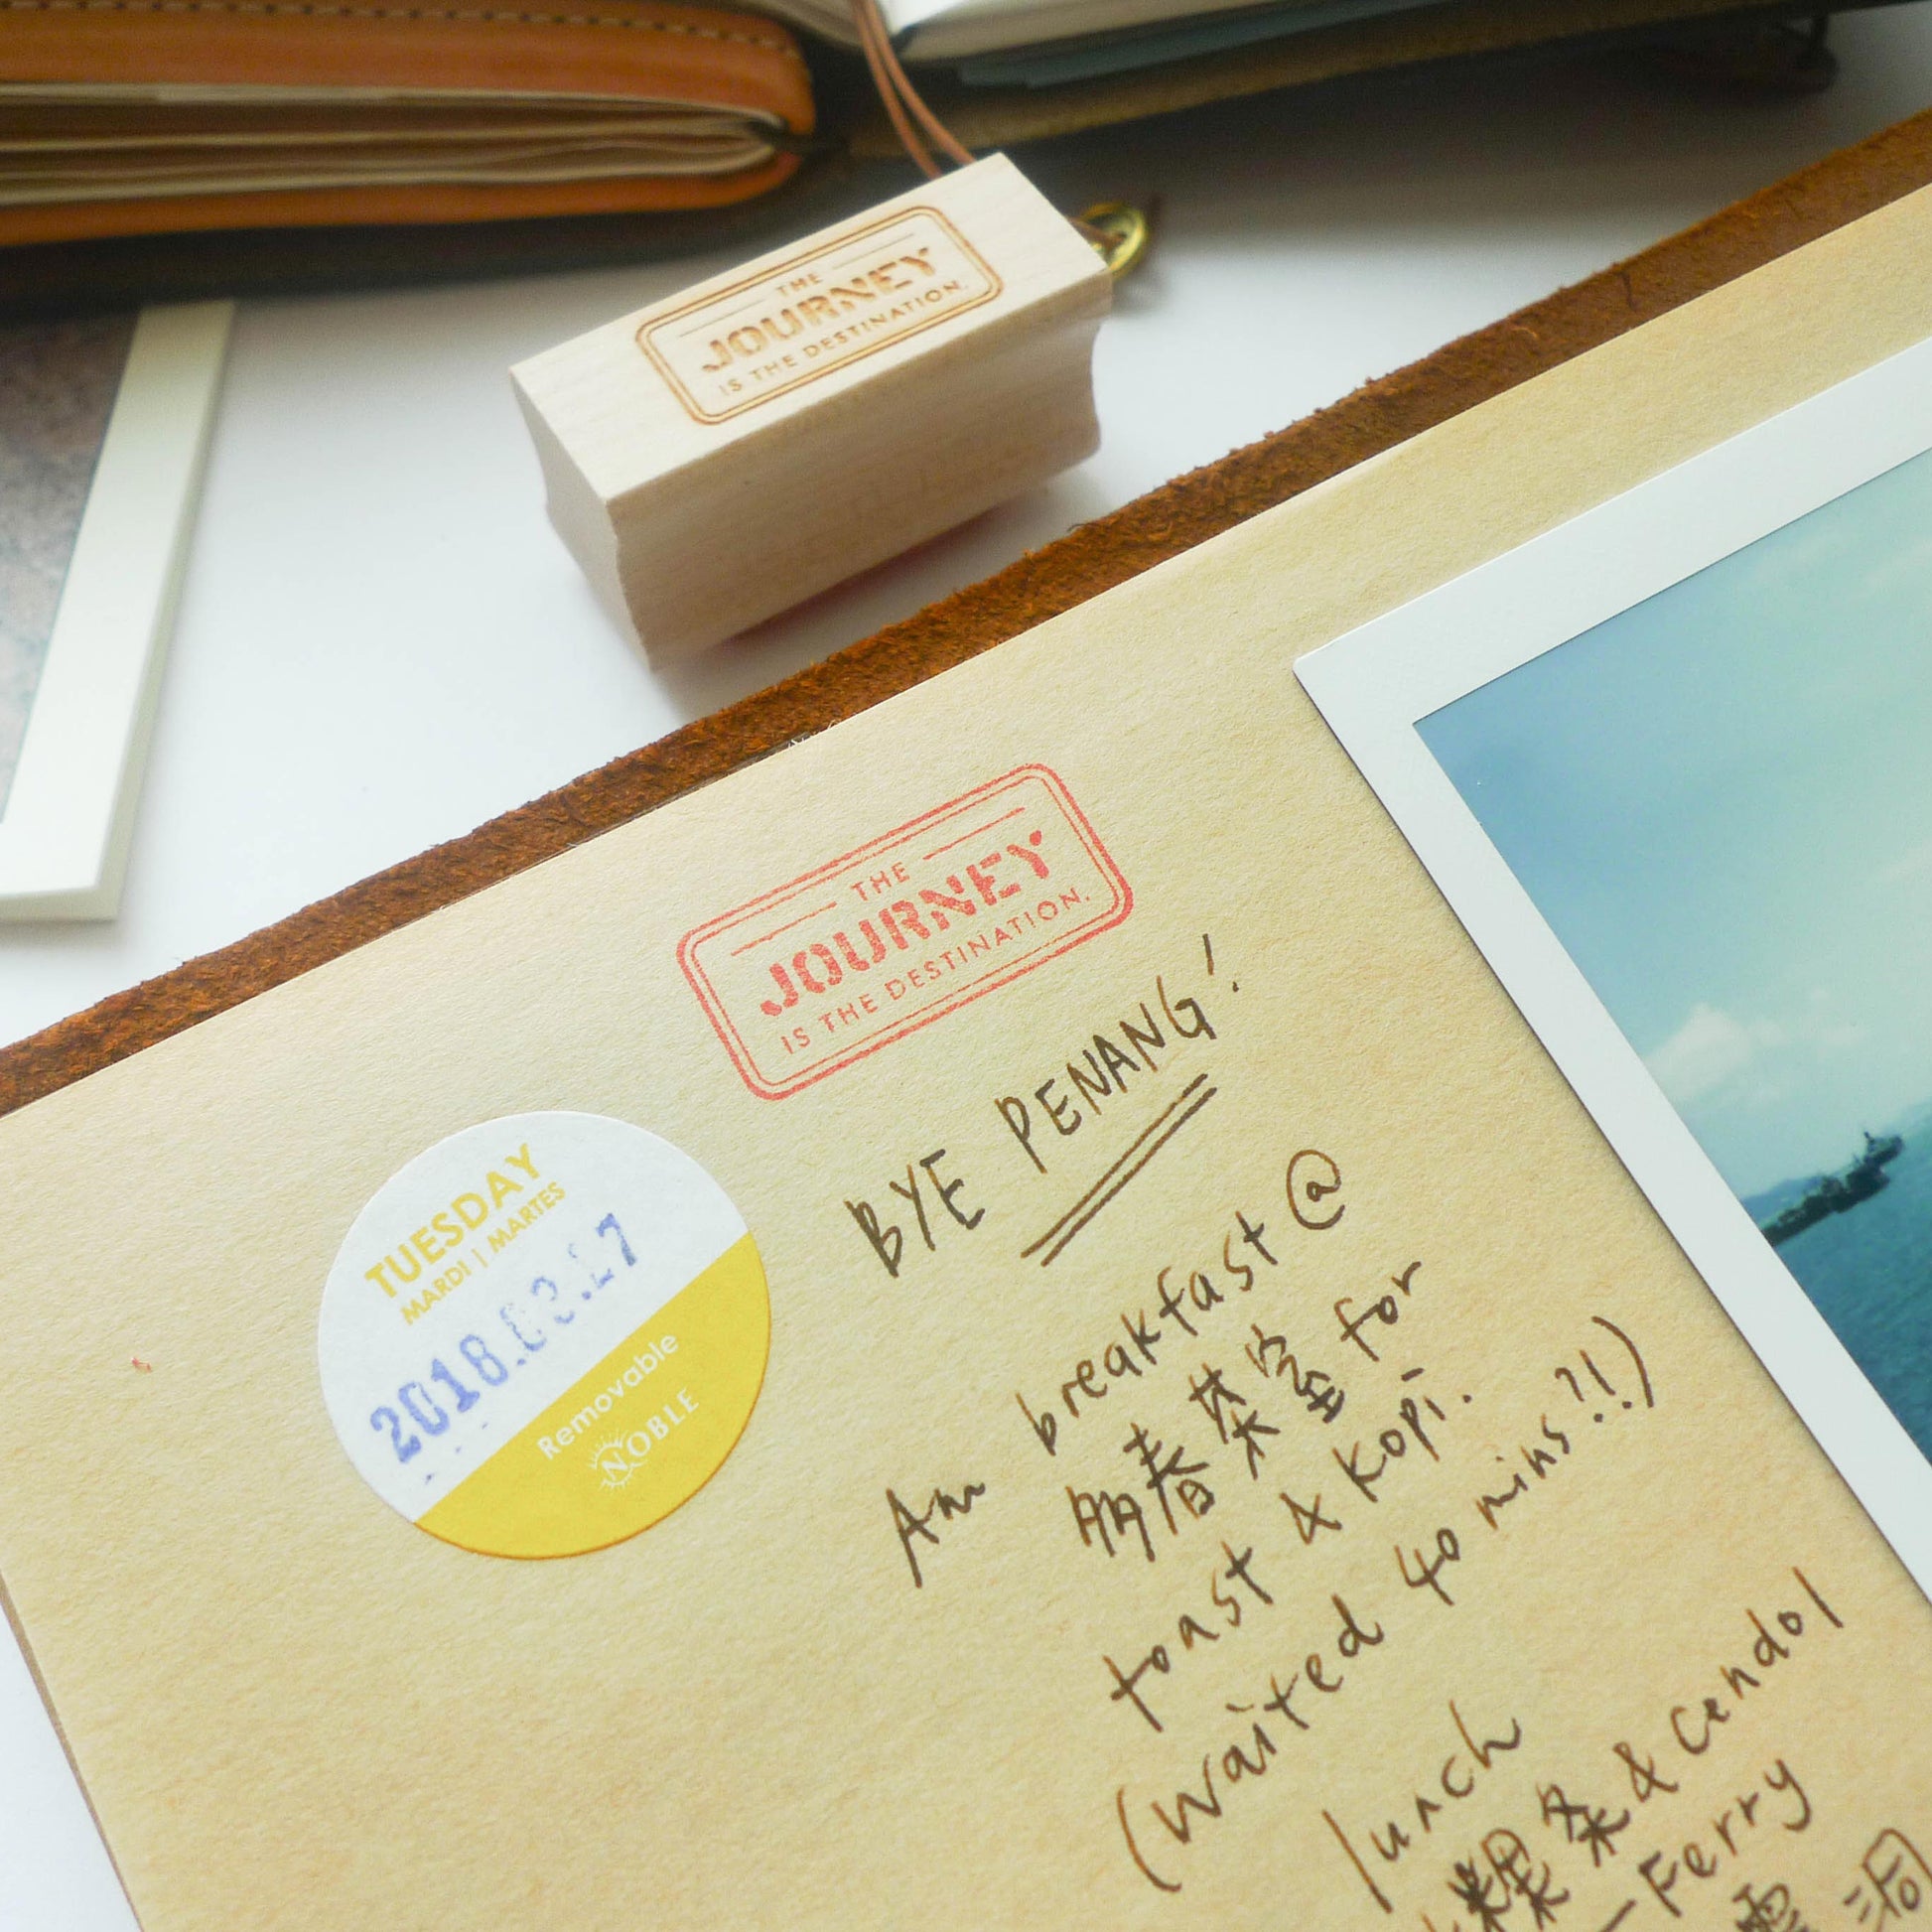 THE
JOURNEY
IS THE DESTINATION.
THE
JOURNEY
IS THE DESTINATION.
BYE PENANG!
TUESDAY
MARDI | MARTES
2018.03.27
Removable
NOBLE
Am breakfast @
多春茶室 for
toast & kopi.
(waited 40 mins?!!)
lunch
粿条 & Cendol
Ferry
洞